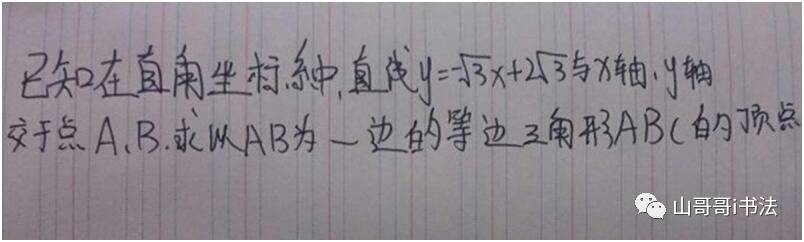 已知在直角坐标系中,直线y=-√3x+2√3与x轴、y轴
交于点A、B.求以AB为一边的等边三角形ABC的顶点
山哥哥i书法